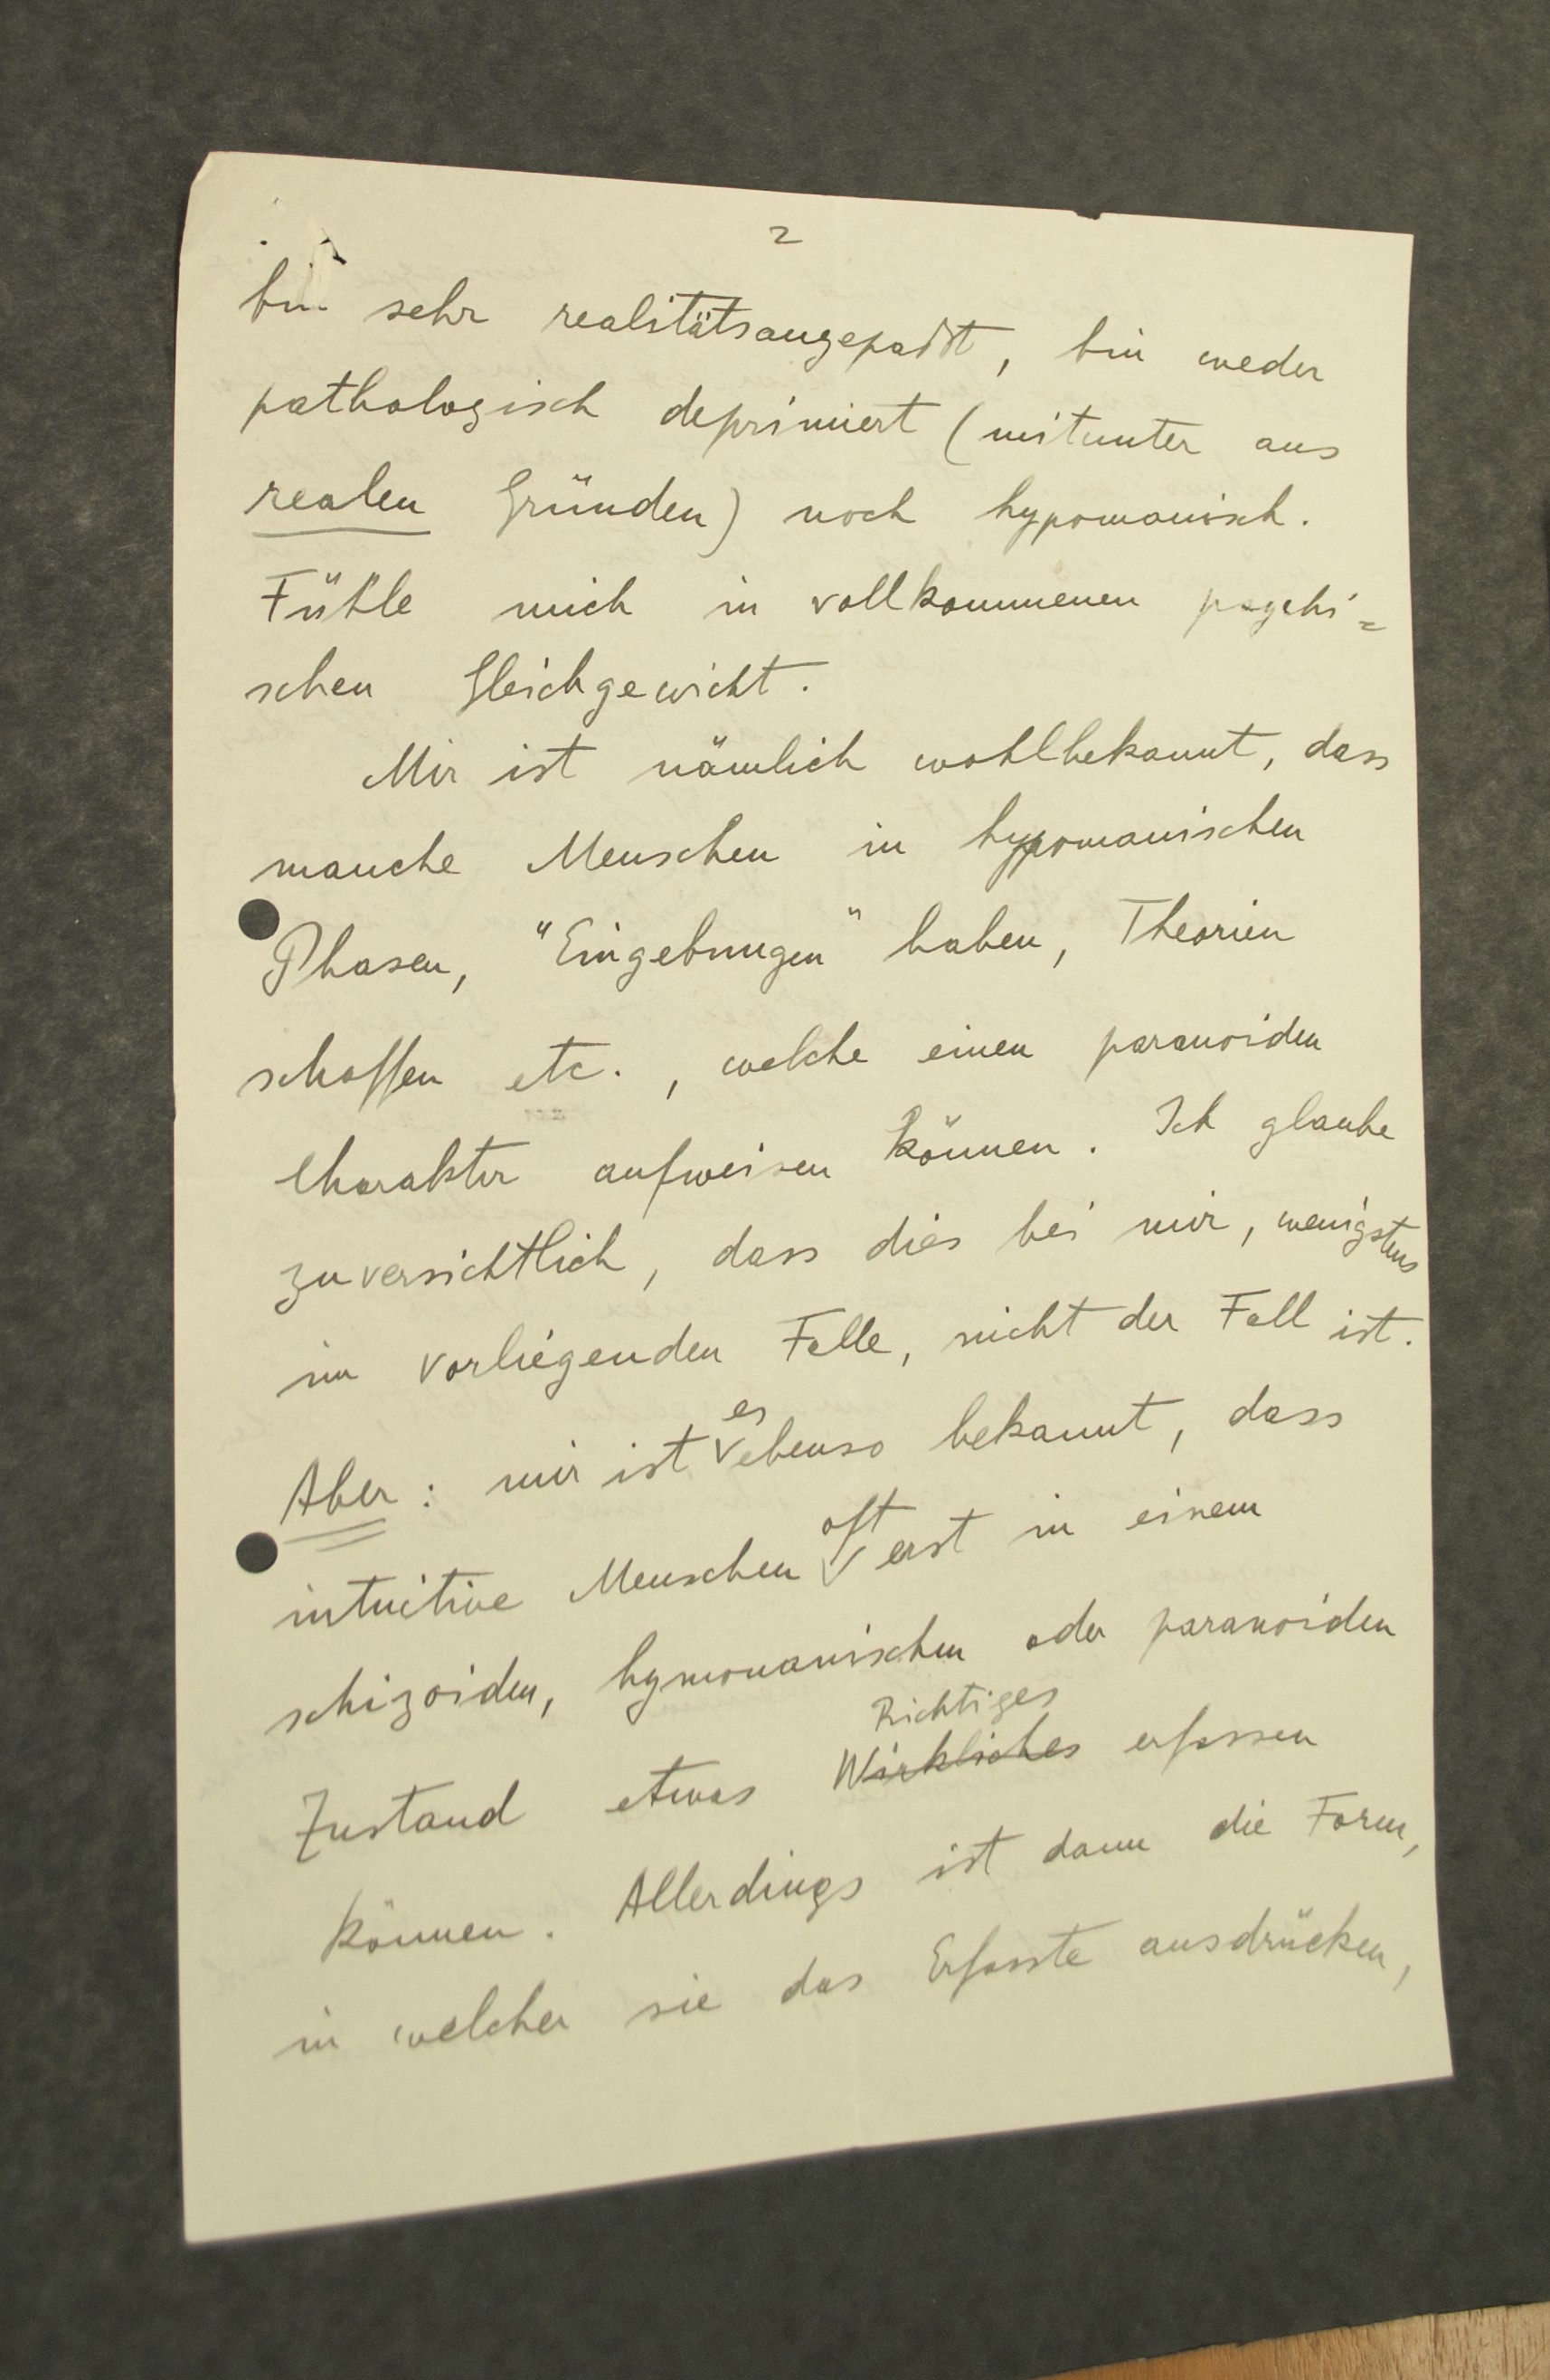 2
bin sehr realitätsangepasst, bin weder
pathologisch deprimiert (mitunter aus
realen Gründen) noch hypomanisch.
Fühle mich in vollkommenen psychi=
schen Gleichgewicht.
Mir ist nämlich wohlbekannt, dass
manche Menschen in hypomanischen
Phasen, "Eingebungen" haben, Theorien
schaffen etc., welche einen paranoiden
Charakter aufweisen können. Ich glaube
zuversichtlich, dass dies bei mir, wenigstens
im vorliegenden Falle, nicht der Fall ist.
Aber: mir ist es ebenso bekannt, dass
intuitive Menschen oft erst in einem
schizoiden, hymomanischen oder paranoiden
Zustand etwas Wirkliches Richtiges erfassen
können. Allerdings ist dann die Form,
in welcher sie das Erfasste ausdrücken,